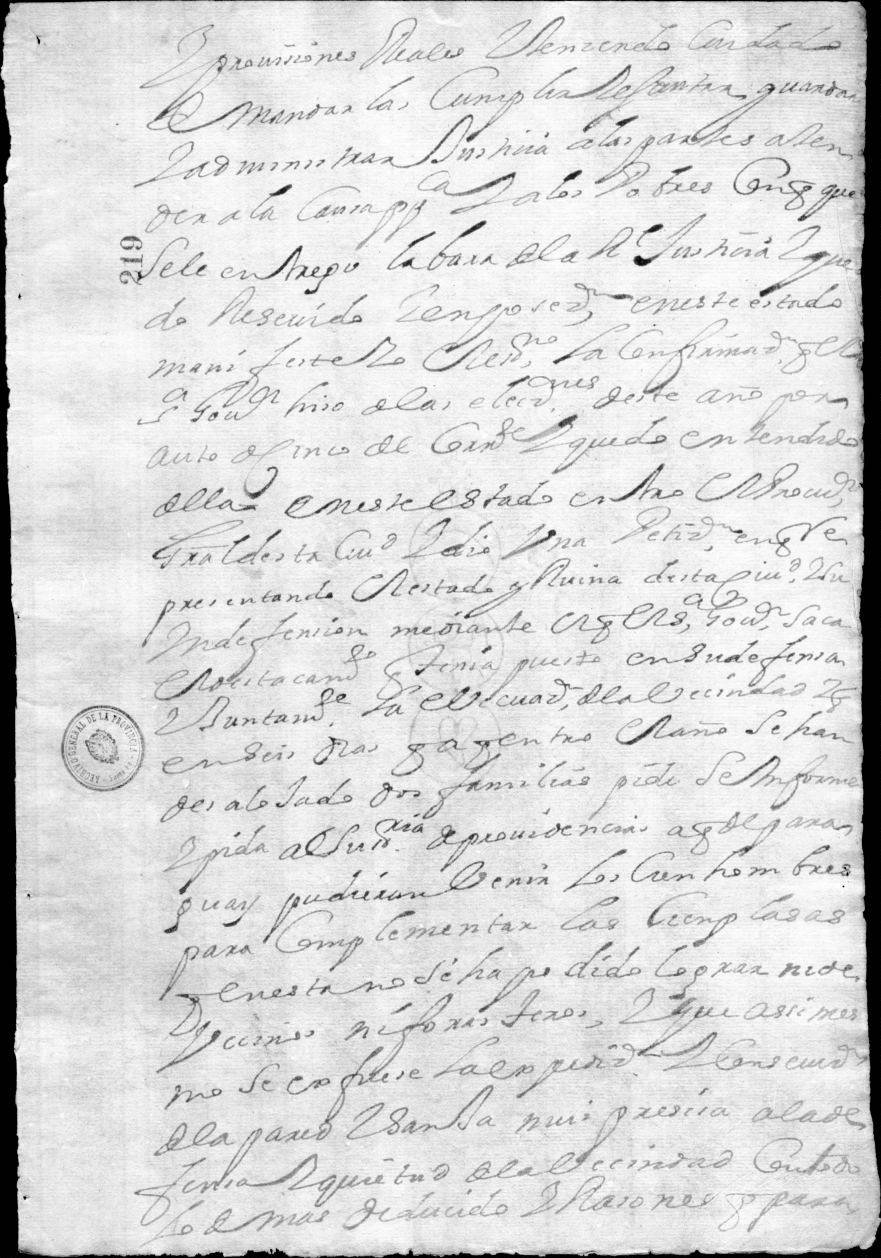 y prouissiones Reales y teniendo Cuidado
de mandar las Cumplir Executar y guardar
y administrar Justicia a las partes aten
der a la Causa pp.ca y a los Pobres Con q que
Se le entrego la bara de la Rl Justicia y que
do Reseuido y en poses.on en este estado
manifeste Yo el es.no la Confirmaz.on q el
s.or Gou.or hiso de las elecc.nes deste año por
auto de sinco del Corr.te y quedo entendido
della en este estado entro el Procu.or
Gral desta Ciu.d y dio Vna Petiz.on en q Re
presentando el estado y Ruina desta Ciu.d y Su
Yndefension mediante el q el s.or Gou.or Saca
el destacam.to q tenia puesto en Su defensa
y Juntam.te la escuad.on de la Vecindad y q
en Seis dias q a q entro el año Se han
desalojado dos familias pide Se Ynforme
y pida al Su s.ria de prouidencias a q del para
guay pudieran Venir los Cien hombres
para Complementar las Cien plasas
q en esta no Se ha podido lograr ni de
Vecinos ni forasteros, y que assimes
mo Se es fuese la espediz.on
de la pared y Sanja mui presisa a la de
fensa y quietud de la Vecindad Con todo
lo demas deducido y Rasones q para
219
ARCHIVO GENERAL DE LA PROVINCIA